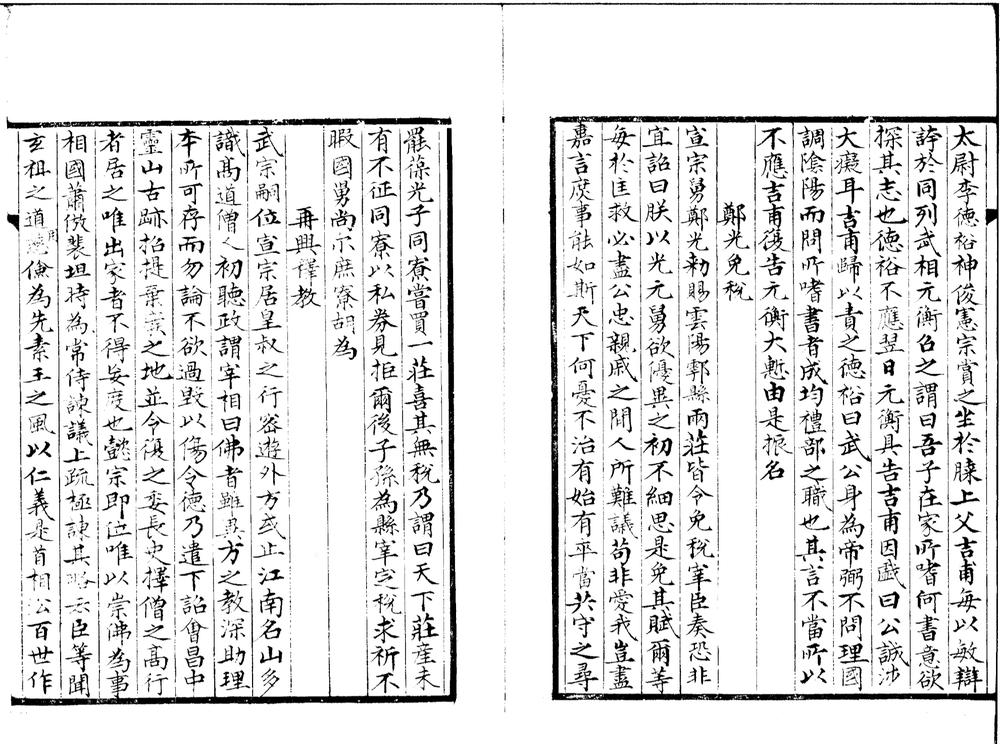 太尉李德裕神俊憲宗賞之坐於膝上父吉甫每以敏辯
誇於同列武相元衡召之謂曰吾子在家所嗜何書意欲
探其志也德裕不應翌日元衡具告吉甫因戲曰公誠涉
大癡耳吉甫歸以責之德裕曰武公身為帝弼不問理國
調陰陽而問所嗜書書者成均禮部之職也其言不當所以
不應吉甫復告元衡大慙由是振名
鄭光免稅
宣宗舅鄭光勑賜雲陽鄠縣兩莊皆令免稅宰臣奏恐非
宜詔曰朕以光元舅欲優異之初不細思是免其賦爾等
每於匡救必盡公忠親戚之間人所難議苟非愛我豈盡
嘉言庶事能如斯天下何憂不治有始有卒當共守之尋
罷葆光子同寮嘗買一莊喜其無稅乃謂曰天下莊產未
有不征同寮以私券見拒爾後子孫為縣宰定稅求祈不
暇國舅尚尒庶寮胡為
再興釋教
武宗嗣位宣宗居皇叔之行密遊外方或止江南名山多
識高道僧人初聽政謂宰相曰佛者雖異方之教深助理
本所可存而勿論不欲過毀以傷令德乃遣下詔會昌中
靈山古跡招提棄廢之地並令復之委長史擇僧之高行
者居之唯出家者不得妄度也懿宗即位唯以崇佛為事
相國蕭倣裴坦時為常侍諫議上疏極諫其略云臣等聞
玄祖之道用慈儉為先素王之風以仁義是首相公百世作